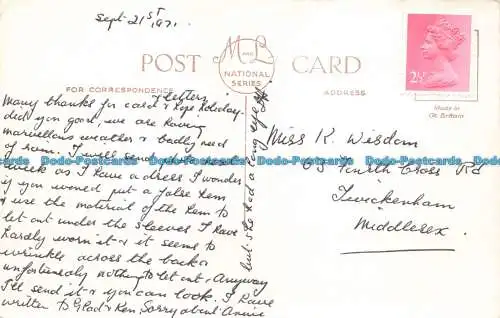 Sept 21ST 1971.
POST CARD
M AND L
NATIONAL
SERIES
FOR CORRESPONDENCE
ADDRESS
2½
Made in
Gt. Britain
Many thanks for card & letters
& hope holiday
did you good, we are having
marvellous weather & badly need
of rain. I will send
week as I have a dress I wonder
if you would put a false hem
& use the material of the hem to
let out under the sleeves I have
hardly worn it & it seems to
wrinkle across the back &
unfortunately nothing to let out. Anyway
I'll send it & you can look. I have
written to Glad & Ken. Sorry about Annie
but she had a long
Miss K. Wisdom
63 Fourth Cross Rd
Twickenham
Middlesex.
Dodo-Postcards Dodo-Postcards Dodo-Postcards Dodo-Postcards